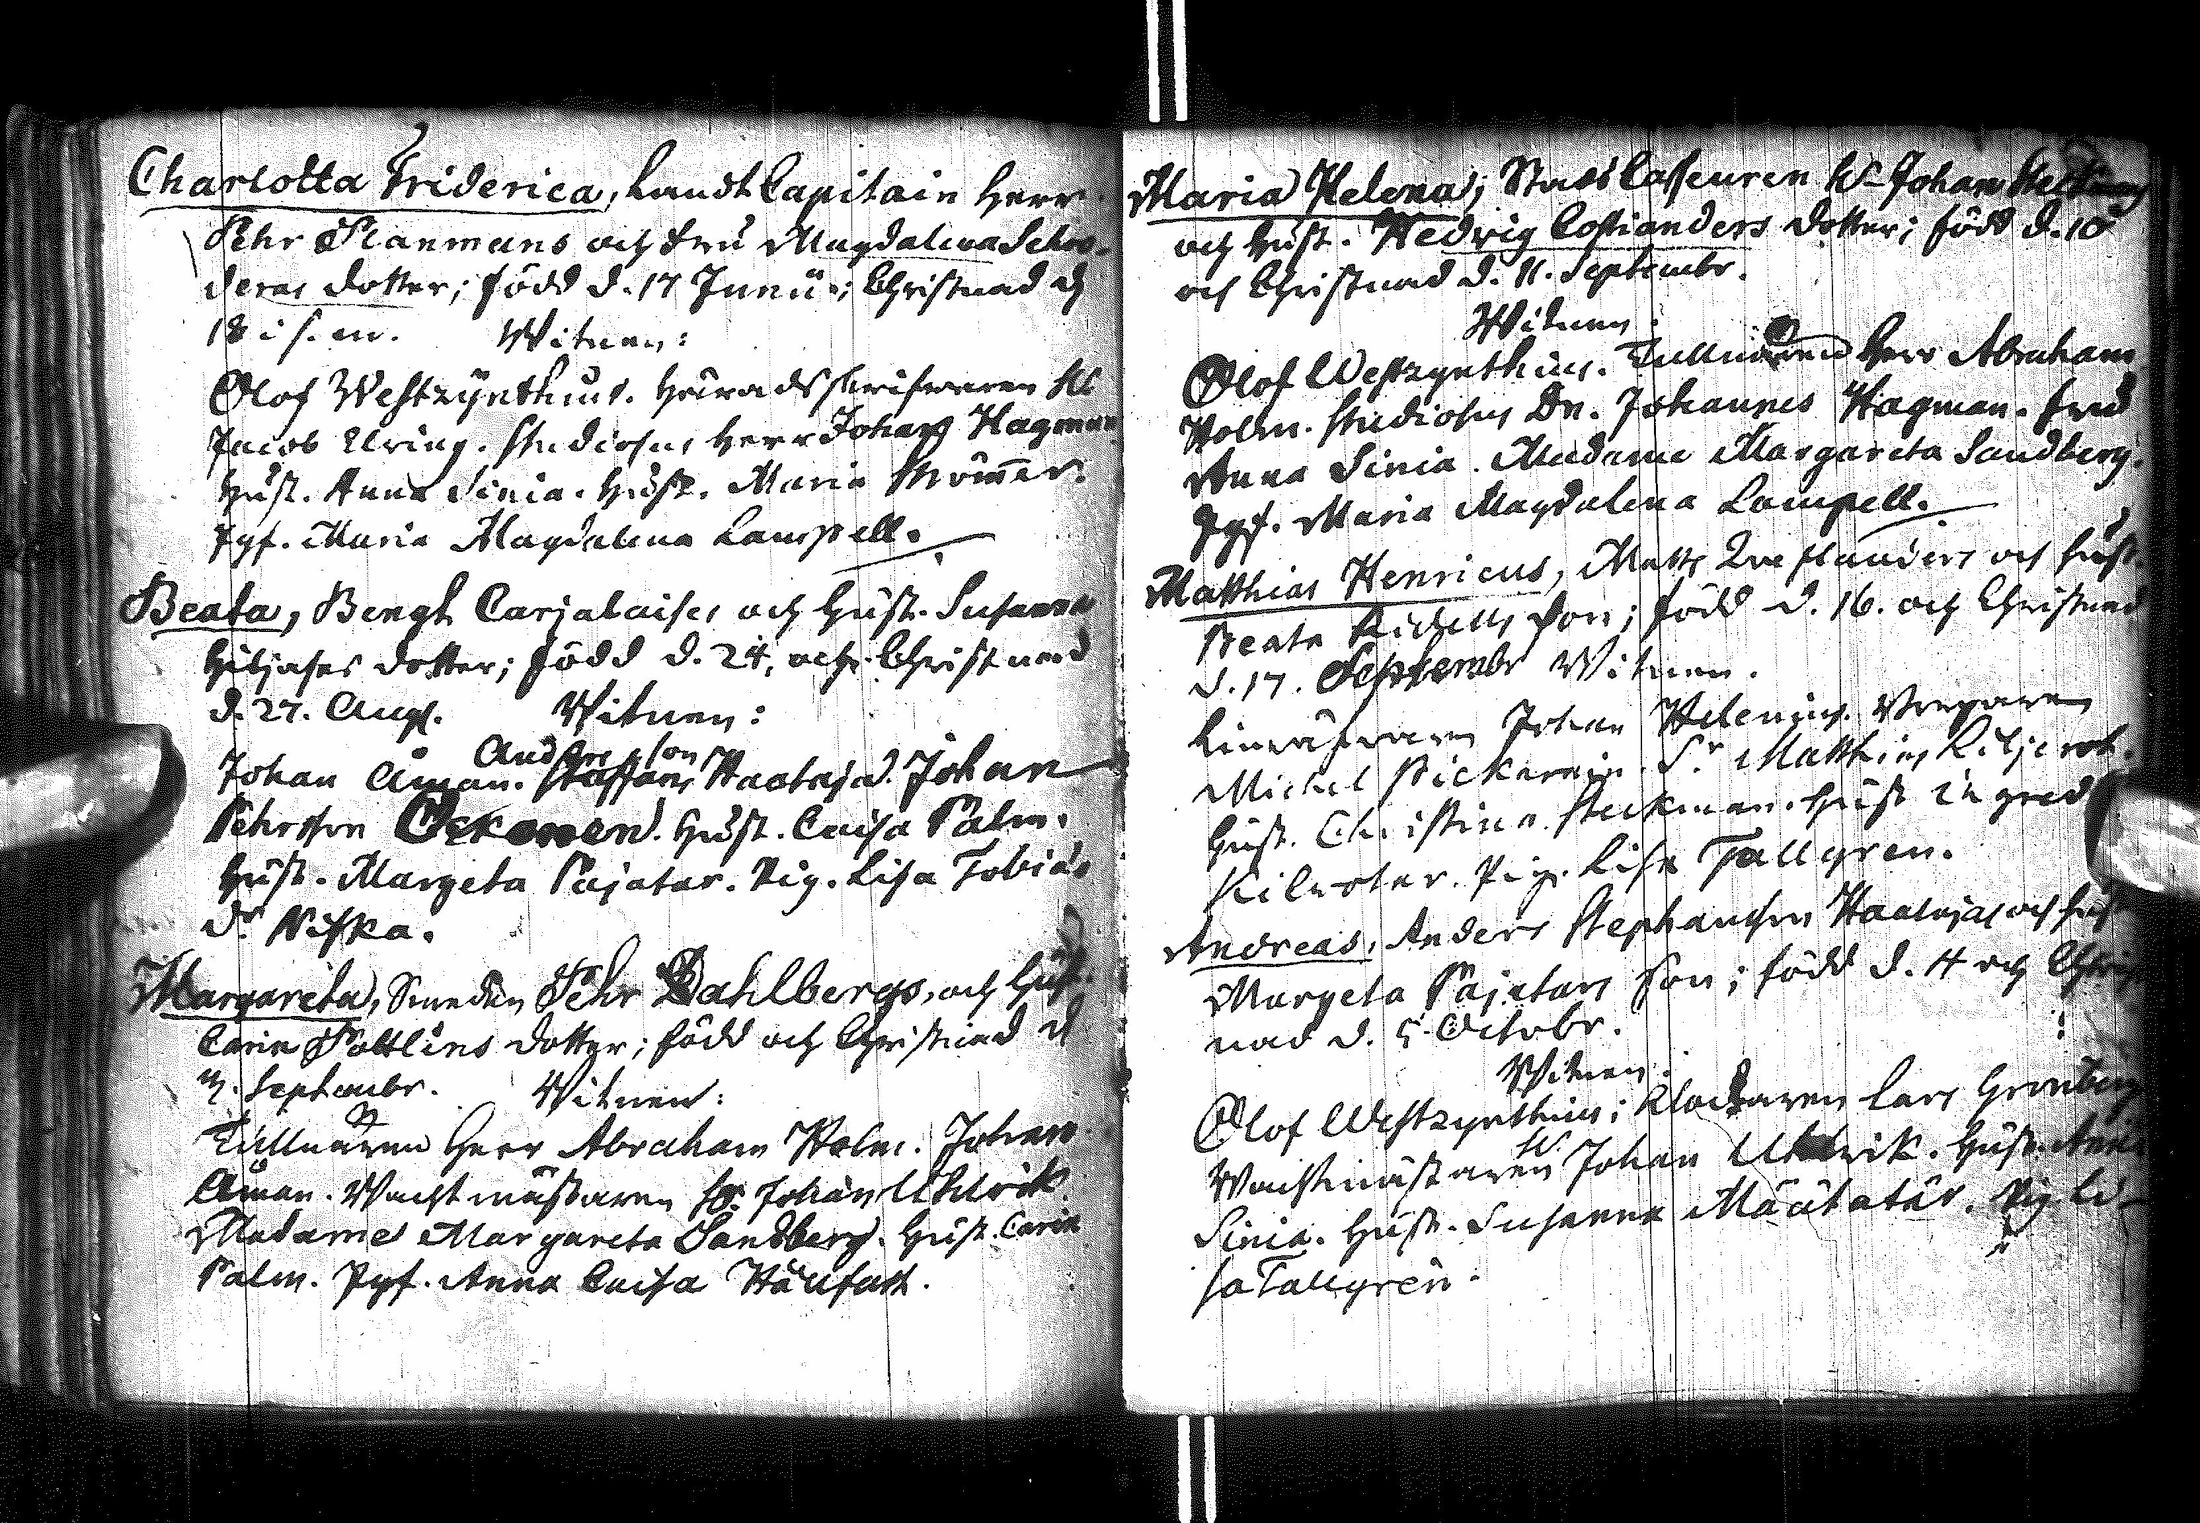 Charlotta Friderica, Landt Capitain Herr
Pehr Planmans och Fru Magdalena Schro-
deras dotter; född d. 17 Junii; Christnad d
18 i s. m. Witnen:
Olof Westzynthius. Häradsskrifwaren H
Jacob Uring. Studiosus Herr Johan Hagman
Hust. Anna Sinia. Hust. Maria Strömmer.
Jgf. Maria Magdalena Lampell.
Beata, Bengt Carjalaises och Hust. Susanna
Hiljases dotter; född d. 24, och Christnad
d. 27. Aug. Witnen:
Andersson
Johan Åman. Staffans Haataja. Johan
Pehrsson Ockonen. Hust. Caisa Palm.
Hust. Margeta Pajatar. Pig. Lisa Tobias
dr Niska.
Margareta, Smeden Pehr Dahlbergs, och Hust.
Carin dotter; född och Christnad d
Septembr. Witnen:
Tullnären Herr Abraham Holm. Johan
Åman. Wachtmästaren Hr Johan Uhlrik
Madame Margareta Sandberg. Hust. Carin
Palm. Jgf. Anna Caisa Hällfast.
Maria Helena; Hr Johan
och Hust. Hedvig Costianders dotter; född d. 10
och Christnad d. 11. Septembr.
Witnen:
Olof Westzynthius. Tullnären Herr Abraham
Holm. Studiosus Dn. Johannes Hagman. Fru
Anna Sinia. Madame Margareta Sandberg.
Jgf. Maria Magdalena Lampell.
Matthias Henricus, Matts och Hust.
Beata son; född d. 16. och Christnad
d. 17. Septembr Witnen.
Johan Helenius.
Michel Pickarain. Sr Matthias
Hust. Christina Stickman. Hust. Ingred
Pig. Lisa Tallgren.
Andreas, Anders Stephansson Haatajas och Hust
Margeta Pajatars son; född d. 4 och Christ
nad d. 5 Octobr.
Witnen:
Olof Westzynthius; Klockaren Lars Grönberg
Wachtmästaren Hr Johan Uhlrik. Hust. Anna
Sinia. Hust. Susanna Määtatär. Pig. Li-
sa Tallgren.